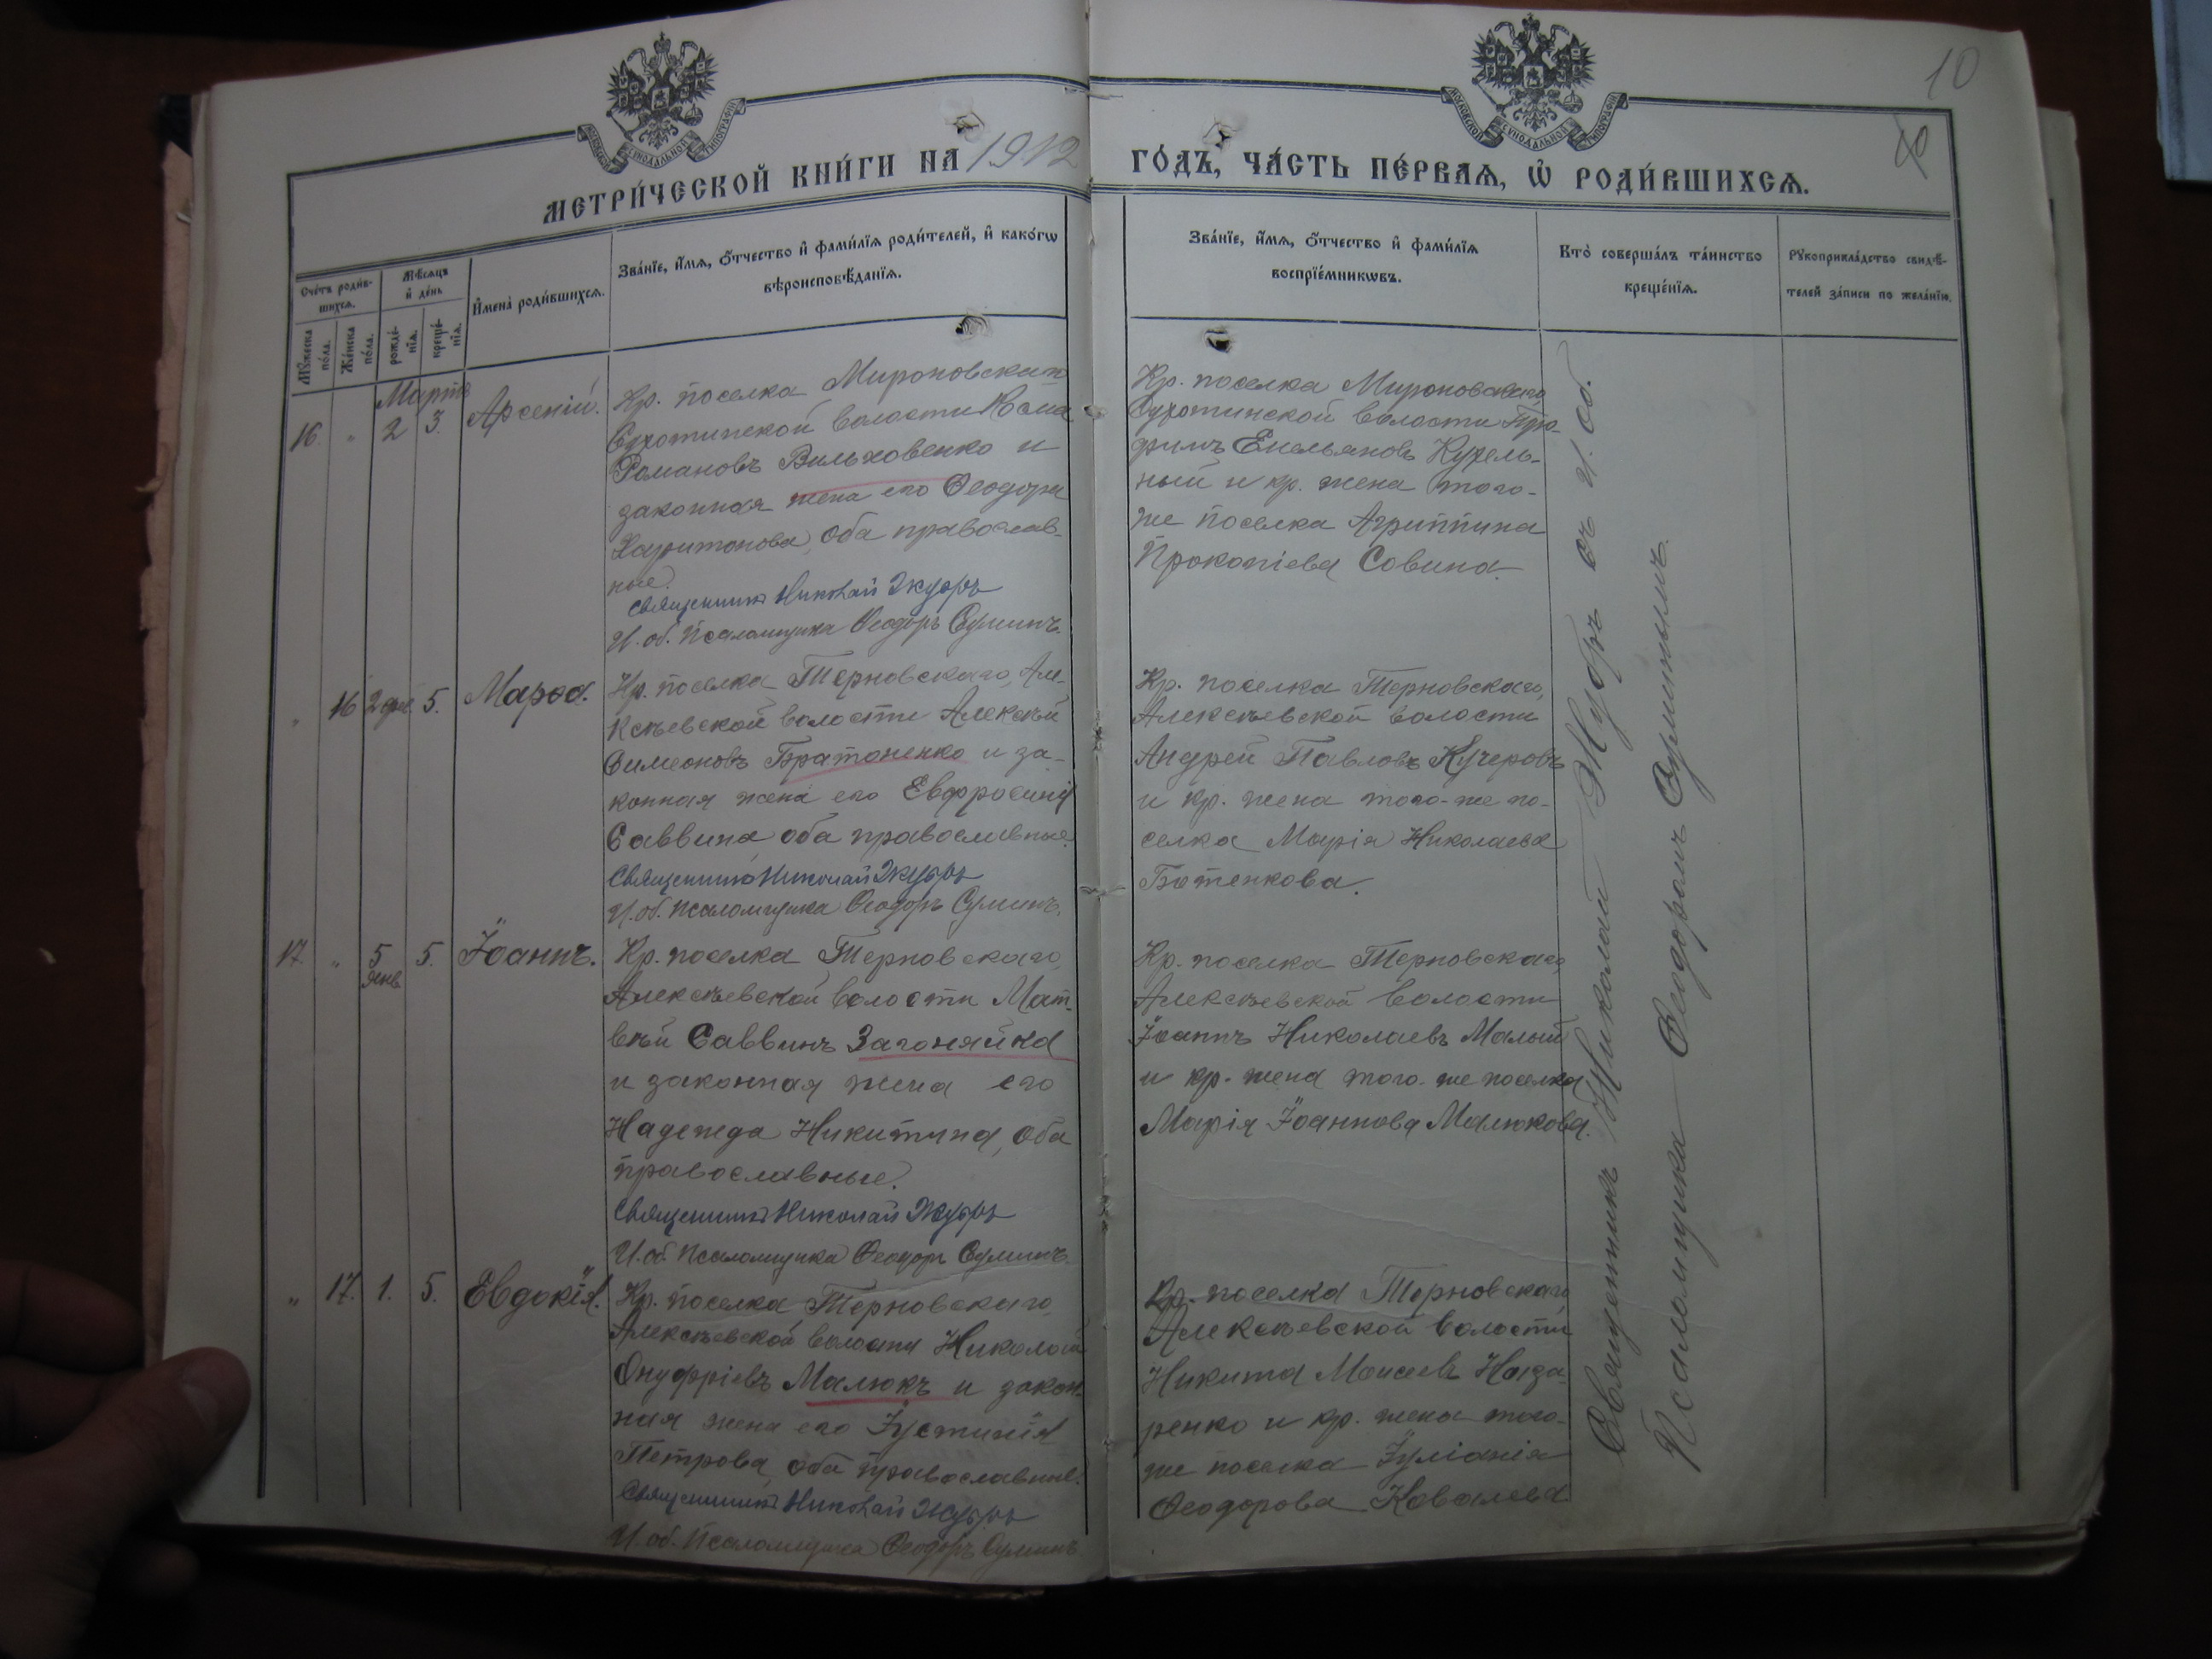 10
МОСКОВСКОЙ СѴНОДАЛЬНОЙ ТИПОГРАФІИ
МОСКОВСКОЙ СѴНОДАЛЬНОЙ ТИПОГРАФІИ
МЕТРИ́ЧЕСКОЙ КНИ́ГИ НА 1912
ГО́ДЪ, ЧА́СТЬ ПЕ́РВАѦ, Ѽ РОДИ́ВШИХСѦ.
Сче́тъ роди́в-
шихсѧ.
Мꙋ́жеска
по́ла.
Же́нска
по́ла.
Мѣ́сѧцъ
и҆ де́нь
рожде́-
нїѧ.
креще́-
нїѧ.
И҆мена̀ роди́вшихсѧ.
Зва́нїе, и҆́мѧ, о҆́тчество и҆ фами́лїѧ роди́телей, и҆ како́гѡ
вѣроисповѣ́данїѧ.
Зва́нїе, и҆́мѧ, о҆́тчество и҆ фами́лїѧ
воспрїе́мникѡвъ.
Кто̀ соверша́лъ та́инство
креще́нїѧ.
Рꙋкоприкла́дство свидѣ́-
телей за́писи по жела́нїю.
Марта
16. „ 2 3. Арсеній.
Кр. поселка Мироновскаго
Сухотинской волости Косма
Романовъ Вильховенко и
законная жена его Ѳеодора
Харитонова, оба православ-
ные.
Священникъ Николай Жубръ
И. об. Псаломщика Ѳеодоръ Сулимъ.
Кр. поселка Мироновскаго
Сухотинской волости Тро-
фимъ Емельяновъ Кужель-
ный и кр. жена того-
же поселка Агриппина
Прокопіева Совина.
„ 16 2 фев. 5. Марѳа.
Кр. поселка Терновскаго, Але-
ксѣевской волости Алексѣй
Симеоновъ Братоненко и за-
конная жена его Евфросинія
Саввина оба православные.
Священникъ Николай Жубръ
И. об. Псаломщика Ѳеодоръ Сулимъ.
Кр. поселка Терновскаго,
Алексѣевской волости
Андрей Павловъ Кучеровъ
и кр. жена того-же по-
селка Марія Николаева
Ботенкова.
17. „ 5 янв. 5. Іоаннъ.
Кр. поселка Терновскаго,
Алексѣевской волости Мат-
вѣй Саввинъ Загоняйка
и законная жена его
Надежда Никитина, оба
православные.
Священникъ Николай Жубръ
И. об. Псаломщика Ѳеодоръ Сулимъ.
Кр. поселка Терновскаго
Алексѣевской волости
Іоаннъ Николаевъ Малый
и кр. жена того-же поселка
Марія Іоаннова Малюкова.
„ 17. 1. 5. Евдокія.
Кр. поселка Терновскаго
Алексѣевской волости Николай
Онуфріевъ Малюкъ и закон-
ная жена его Іустинія
Петрова, оба православные.
Священникъ Николай Жубръ
И. об. Псаломщика Ѳеодоръ Сулимъ
Кр. поселка Терновскаго
Алексѣевской волости
Никита Моисеевъ Наза-
ренко и кр. жена того-
же поселка Іуліанія
Ѳеодорова Ковалева
Священникъ Николай Жубръ съ И. об.
Псаломщика Ѳеодоромъ Сулимымъ.